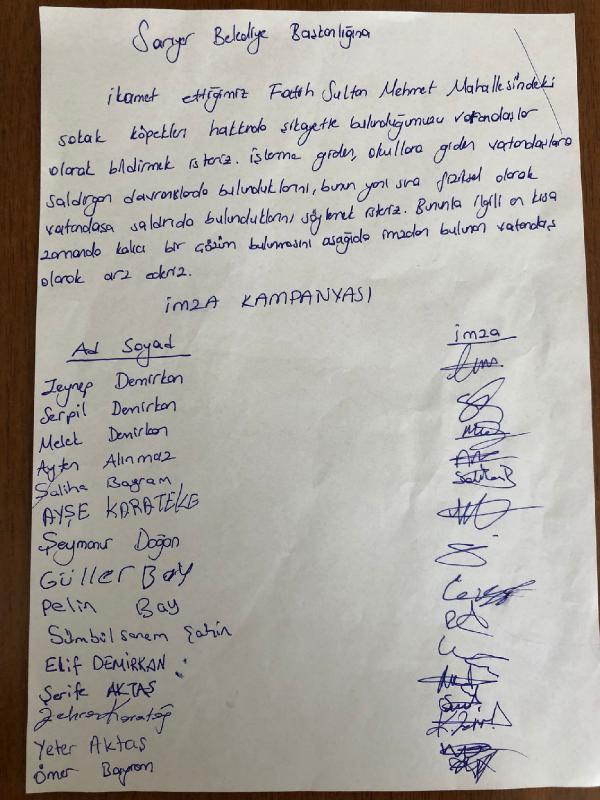 Sarıyer Belediye Başkanlığına
ikamet ettiğimiz Fatih Sultan Mehmet Mahallesindeki
sokak köpekleri hakkında şikayette bulunduğumuzu vatandaşlar
olarak bildirmek isteriz. işlerine giden, okullara giden vatandaşlara
saldırgan davranışlarda bulunduklarını, bunun yanı sıra fiziksel olarak
vatandaşa saldırıda bulunduklarını söylemek isteriz. Bununla ilgili en kısa
zamanda kalıcı bir çözüm bulunmasını aşağıda imzaları bulunan vatandaş
olarak arz ederiz.
İMZA KAMPANYASI
Ad Soyad imza
Zeynep Demirkan
Serpil Demirkan
Melek Demirkan
Ayten Alınmaz
Saliha Bayram Saliha B
AYŞE KARATEKE
Şeymanur Doğan
GÜLLER BAY
Pelin Bay
Sümbülsenem Şahin
Elif DEMİRKAN
Şerife AKTAŞ
Zehra
Yeter Aktaş
Ömer Bayram